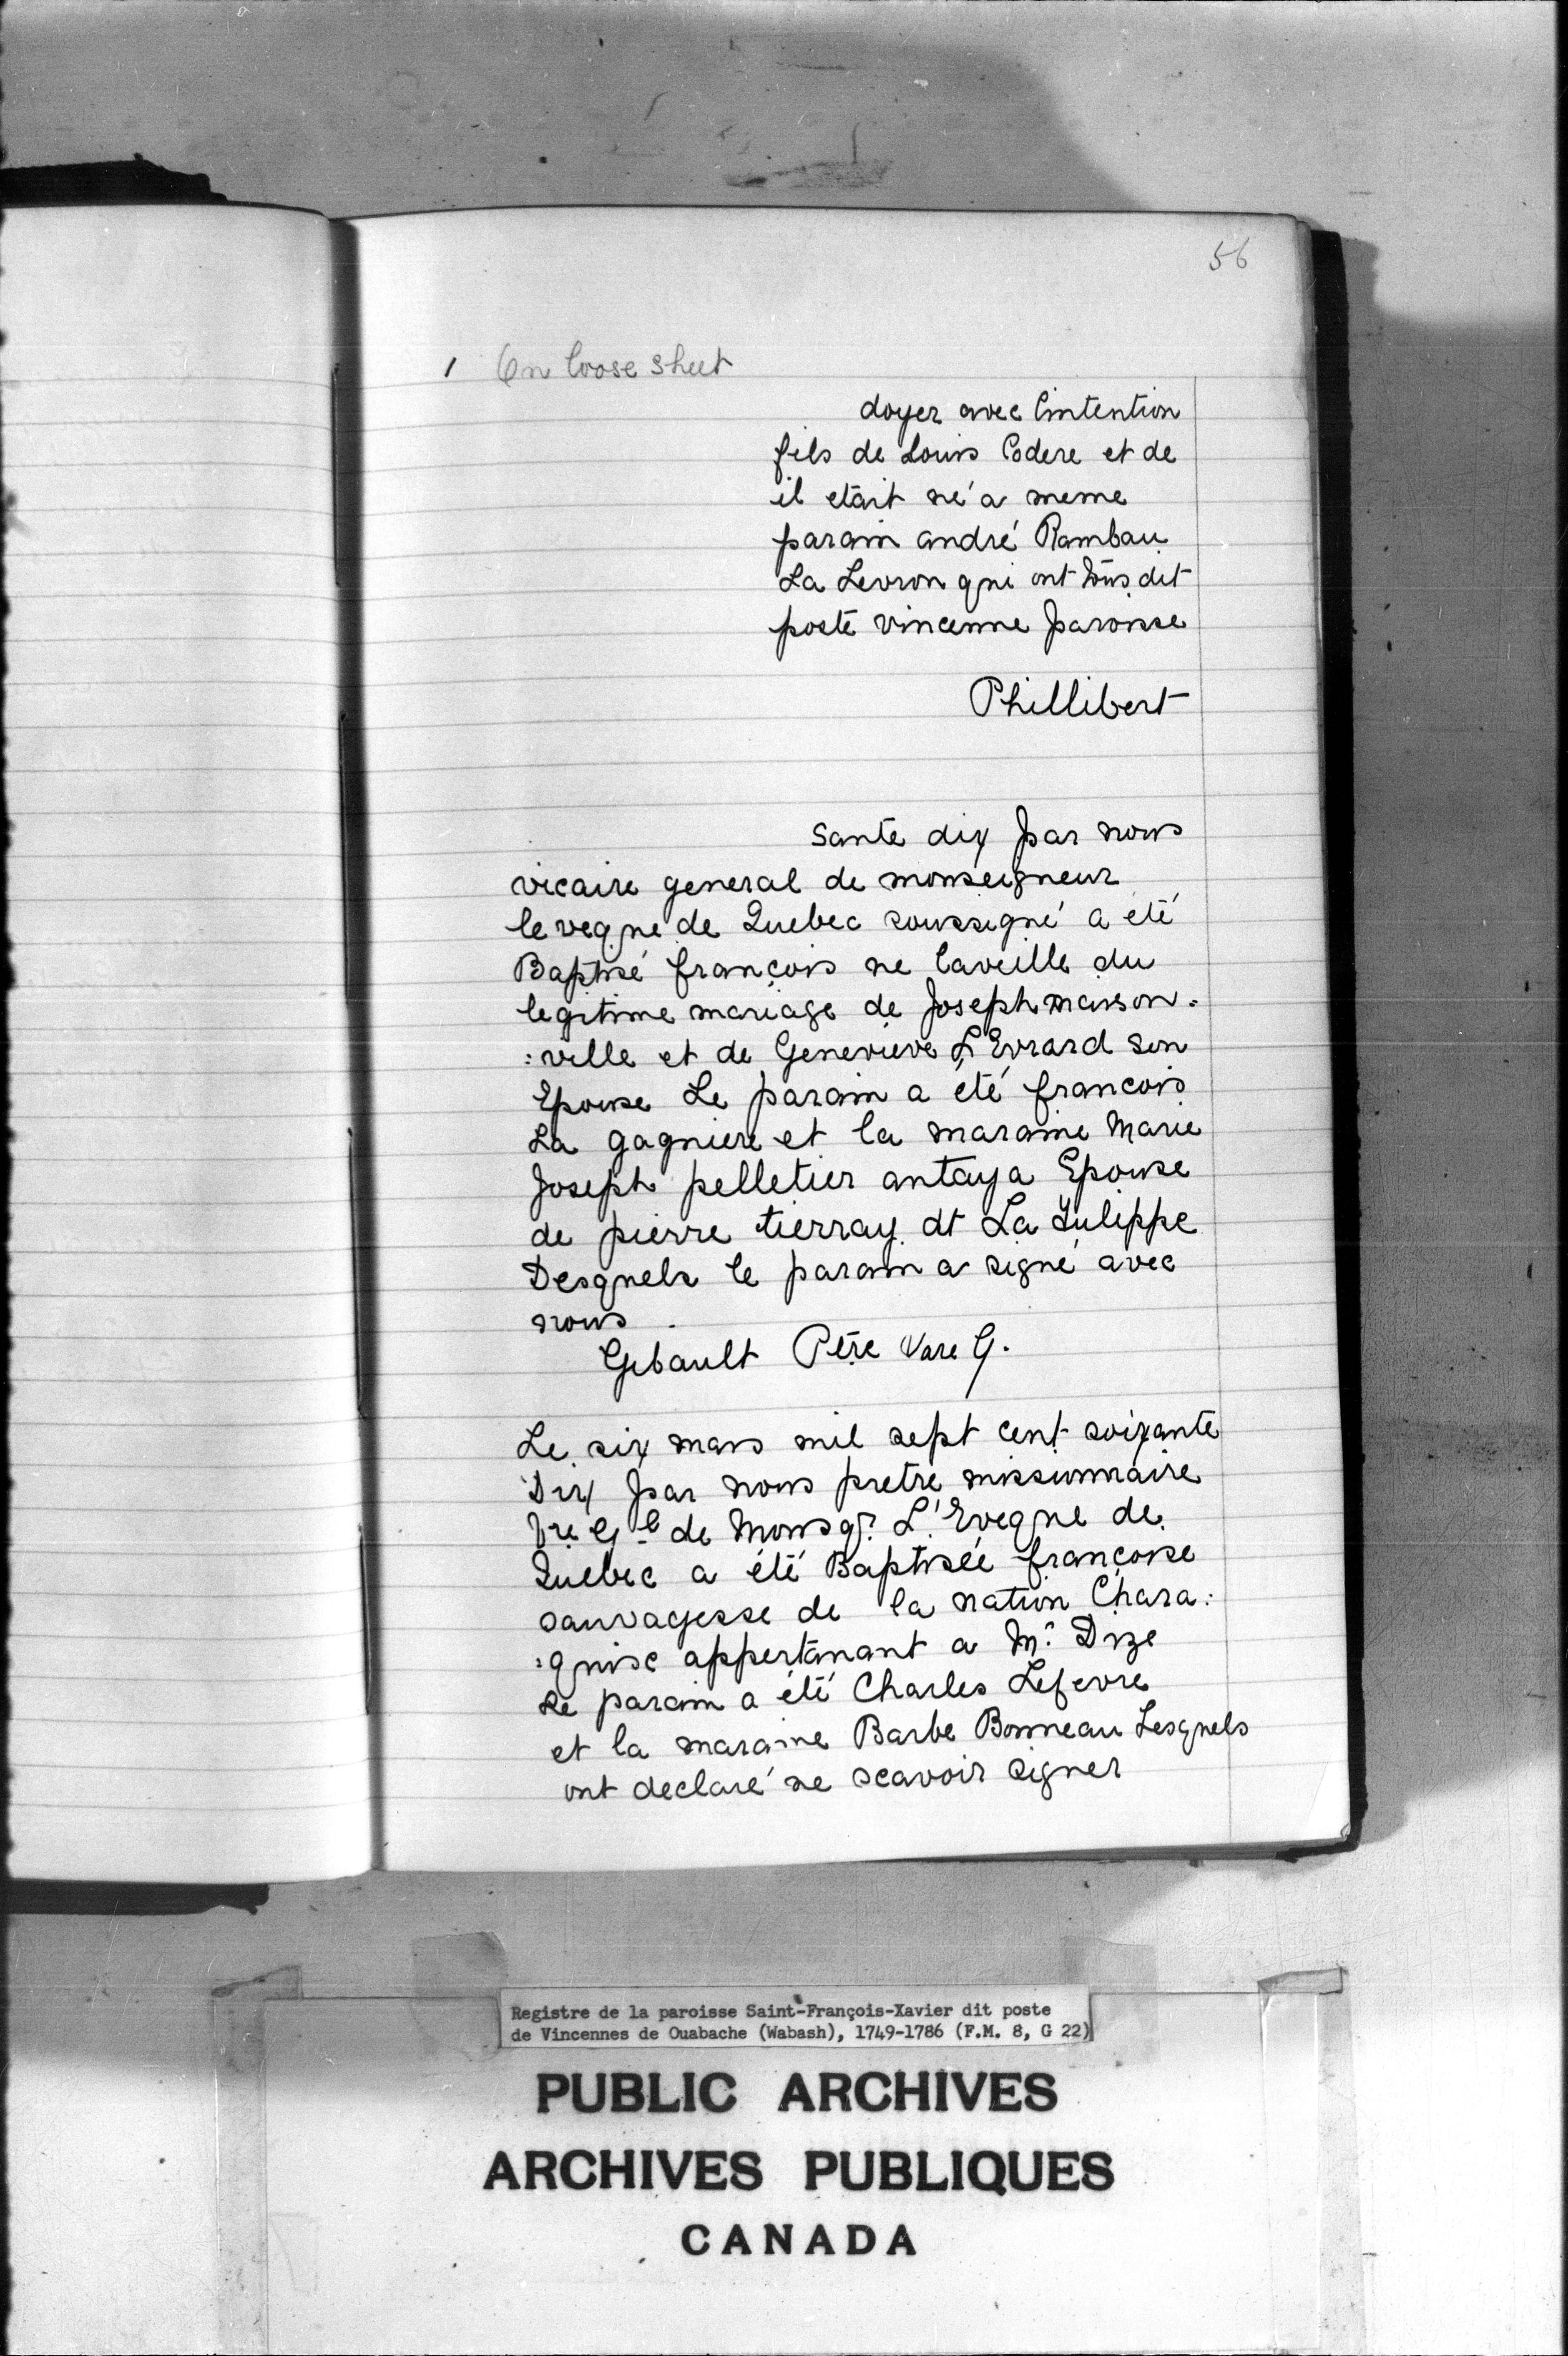 56
1 On loose sheet
doyer avec lintention
fils de Louis Codere et de
il etait né a meme
parain andré Rambau
La Levron qui ont tous dit
poste vincenne paroisse
Phillibert
sante dix par nous
vicaire general de monseigneur
leveque de Quebec soussigné a été
Baptisé françois ne laveille du
legitime mariage de Joseph maison.
:ville et de Genevieve L'Evrard son
Epouse Le parain a été francois
La gagniere et la maraine Marie
Joseph pelletier antaya Epouse
de pierre tierray dt La Tulippe
Desquels le parain a signé avec
nous
Gibault Ptre Vare G.
Le six mars mil sept cent soixante
Dix par nous pretre missionnaire
Vre Gl de Monsgr. L'Eveque de
Quebec a été Baptisée françoise
sauvagesse de la nation Chara:
:quise appertenant a Mr. Dize
Le parain a été Charles Lefevre
et la maraine Barbe Bonneau Lesquels
ont declaré ne scavoir signer
Registre de la paroisse Saint-François-Xavier dit poste
de Vincennes de Ouabache (Wabash), 1749-1786 (F.M. 8, G 22)
PUBLIC ARCHIVES
ARCHIVES PUBLIQUES
CANADA